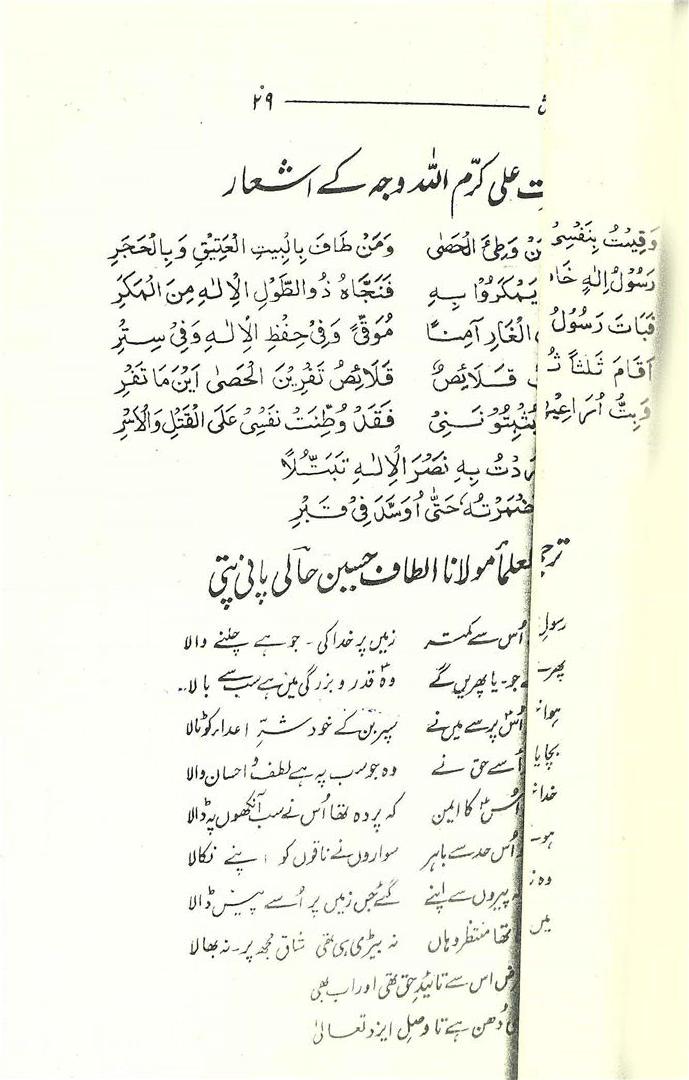 ۲۹
ت علی کرّم اللہ وجہ کے اشعار
وَقِيْتُ بِنَفْسِىْ نْ وَطِئَ الْحَصٰى وَمَنْ طَافَ بِالْبَيْتِ الْعَتِيْقِ وَبِالْحَجَرِ
رَسُوْلُ اِلٰهٍ خَا يَمْكَرُوْا بِهٖ فَنَجَّاهُ ذُو الطَّوْلِ الْاِلٰهِ مِنَ الْمَكَرِ
فَبَاتَ رَسُوْلُ الْغَارِ آمِنًا مُوَقًّى وَفِىْ حِفْظِ الْاِلٰهِ وَفِىْ سِتْرِ
اَقَامَ ثَلٰثاً ثُ قَلَائِصٌ قَلَائِصُ تَفْرِيْنَ الْحَصٰى اَيْنَ مَا تَفْرِ
وَبِتُّ اُرَاعِيْ يُثْبِتُوْنَنِىْ فَقَدْ وُطِّنَتْ نَفْسِىْ عَلَى الْقَتْلِ وَالْاَسْرِ
رَدْتُ بِهٖ نَصْرَ الْاِلٰهِ تَبَتُّلًا
ضْمَرْتُهٗ حَتّٰى اُوَسَّدَ فِىْ قَبْرِ
ترجم مولانا الطاف حسین حالی پانی پتی
رسول اُس سے مکتہ زمیں پر خدا کی ۔ جو ہے چلنے والا
پھر جو ۔ یا پھریں گے وہ قدر و بزرگی میں ہے سب سے بالا
ہوا اُس پر سے میں نے سپر بن کے خود شرِّ اعدا کو ٹالا
بچایا اُسے حق نے وہ جو سب پہ ہے لطف و احسان والا
خدا اُس کا ایمن کہ پردہ تھا اُس نے سب آنکھوں پہ ڈالا
ہو اُس حد سے باہر سواروں نے ناقوں کو اپنے نکالا
وہ پیروں سے اپنے گئے جس زمیں پر اُسے پیس ڈالا
میں تھا منتظر وہاں نہ بیڑی ہی تھی شاق مجھ پر ۔ نہ بھالا
ض اس سے تائیدِ حق تھی اور اب بھی
دُھن ہے تا وصلِ ایزد تعالیٰ